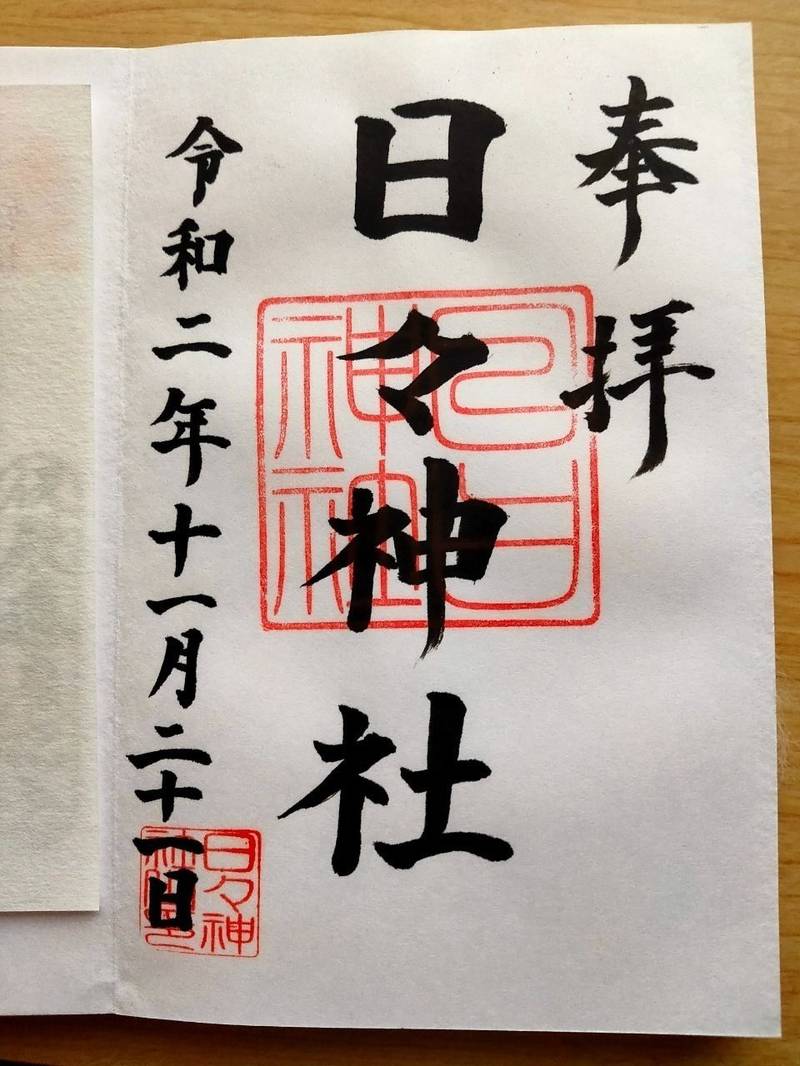 奉拝
日々神社
令和二年十一月二十一日
神社
日々神